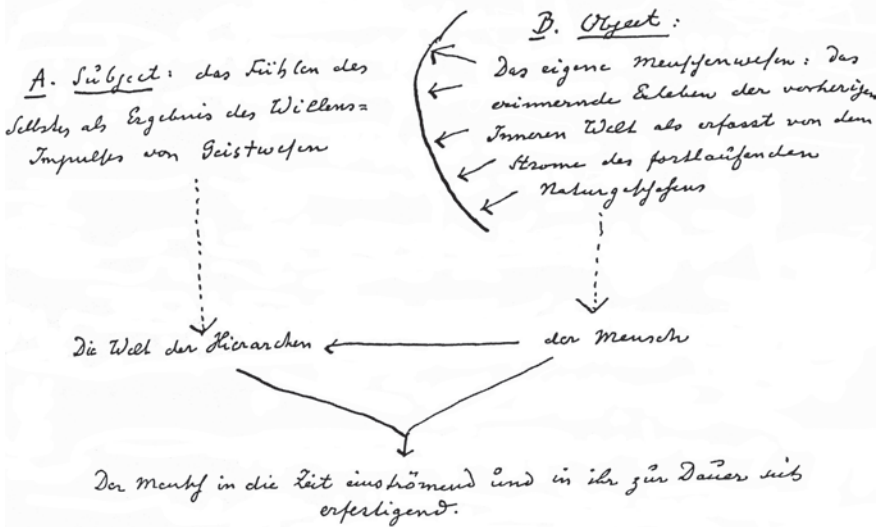 A. Subject: das Fühlen des
Selbstes als Ergebnis des Willens=
Impulses von Geistwesen
B. Object:
Das eigene Menschenwesen: das
erinnernde Erleben der vorherigen
Inneren Welt als erfasst von dem
Strome des fortlaufenden
Naturgeschehens
Die Welt der Hierarchen
der Mensch
Der Mensch in die Zeit einströmend und in ihr zur Dauer sich